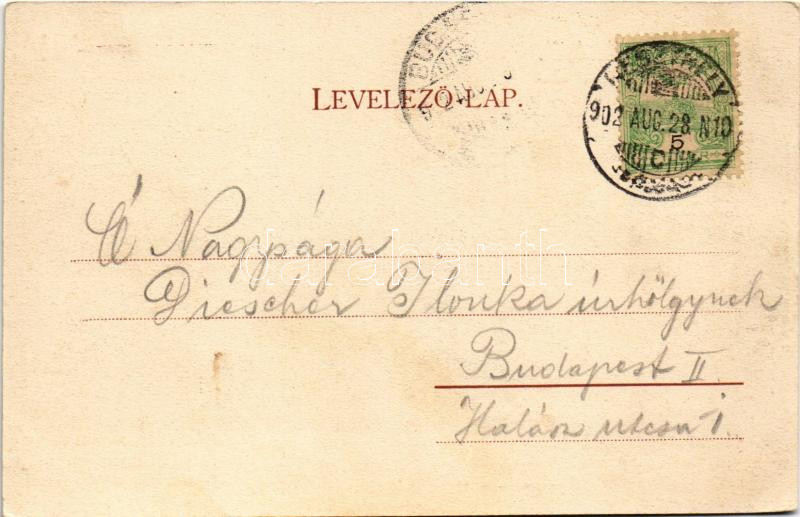 LEVELEZŐ-LAP.
KESZTHELY
902 AUG. 28. N10
C
5
Ő Nagysága
Diescher Ilonka úrhölgynek
Budapest II.
Halász utcza 1.
darabanth